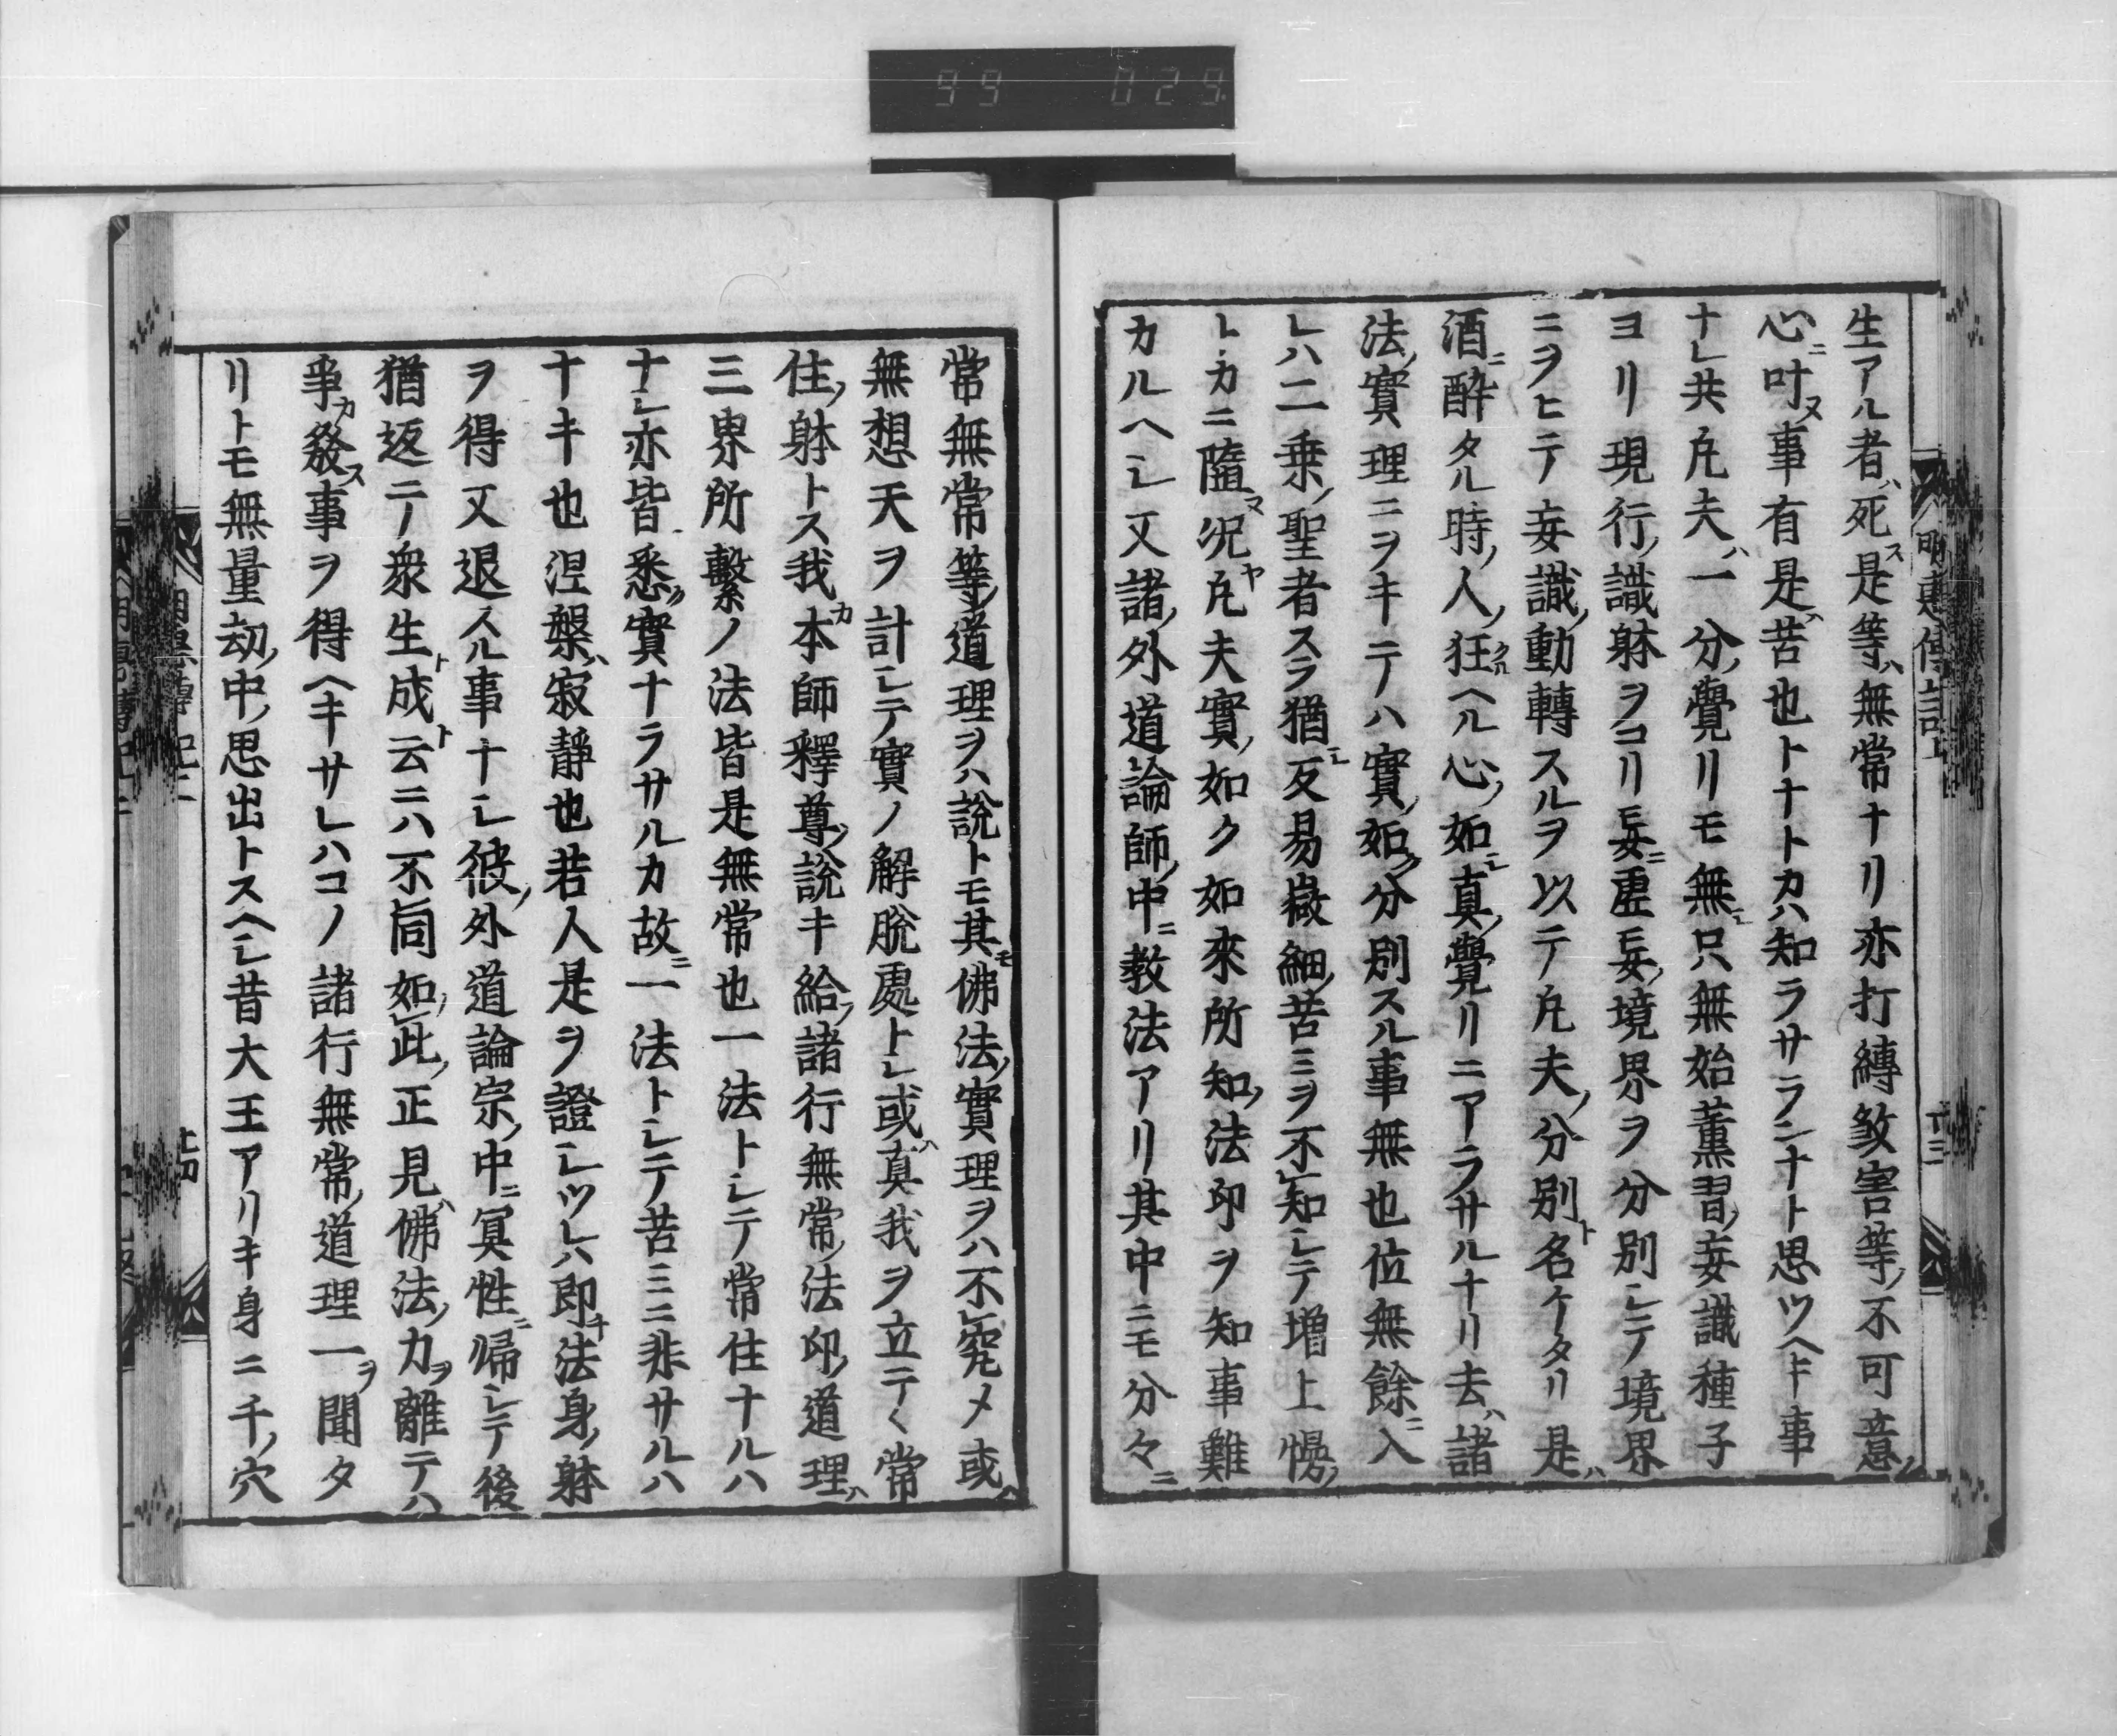 99 029
生アル者ハ死ス是等ハ無常ナリ亦打縛敎害等ノ不可意ノ
心ニ叶ヌ事有是ハ苦也トナトカハ知ラサランナト思ツヘキ事
ナレ共凡夫ハ一分ノ覺リモ無ニ只無始薰習ノ妄識種子
ヨリ現行ノ識躰ヲコリ妄ニ虛妄ノ境界ヲ分別シテ境界
ニヲヒテ妄識ノ動轉スルヲ以テ凡夫ノ分別ト名ケタリ是ハ
酒ニ醉タル時ノ人ノ狂ヘル心ノ如シ真ノ覺リニアラサルナリ去ハ諸
法ノ實理ニヲキテハ實ノ如ク分別スル事無也位無餘ニ入
レハ二乗ノ聖者スラ猶シ反易嶶細ノ苦ミヲ不知シテ増上慢ノ
トカニ隨ヌ况ヤ凡夫實ノ如ク如來所知ノ法印ヲ知事難
カルヘシ又諸ノ外道論師ノ中ニ教法アリ其中ニモ分々ニ
常無常等ノ道理ヲハ說トモ其モ佛法ノ實理ヲハ不究メ或ハ
無想天ヲ計シテ實ノ解脫處トシ或ハ真我ヲ立テヽ常
住ノ躰トス我カ本師釋尊ノ說キ給ノ諸行無常ノ法印ノ道理ハ
三界所繫ノ法皆是無常也一法トシテ常住ナルハ
ナシ亦皆悉ク實ナラサルカ故ニ一法トシテ苦ミニ非サルハ
ナキ也涅槃ハ寂靜也若人是ヲ證シツレハ即ナ法身ノ躰
ヲ得又退スル事ナシ彼ノ外道論宗ノ中ニ冥性ニ帰シテ後
猶返テ衆生ト成ト云ニハ不同如此ノ正見ハ佛法ノ力ヲ離テハ
爭カ發ス事ヲ得ヘキサレハコノ諸行無常ノ道理一ヲ聞タ
リトモ無量劫ノ中ノ思出トスヘシ昔大王アリキ身ニ千ノ穴